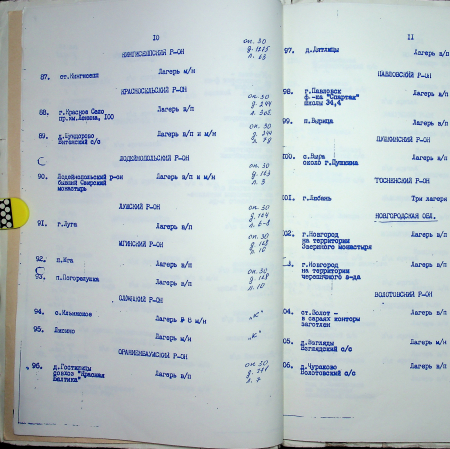 10
КИНГИСЕППСКИЙ Р-ОН
оп. 30
87. ст.Кингисепп Лагерь м/н
КРАСНОСЕЛЬСКИЙ Р-ОН
оп. 30
88. г.Красное Село Лагерь в/п
пр.им.Ленина, 100
оп. 30
89. Лагерь в/п и м/н
ЛОДЕЙНОПОЛЬСКИЙ Р-ОН
оп. 30
90. Лодейнопольский р-он Лагерь в/п и м/н
бывший Свирский
монастырь
л. 3
ЛУЖСКИЙ Р-ОН
оп. 30
91. г.Луга Лагерь в/п
МГИНСКИЙ Р-ОН
оп. 30
л. 10
92. п.Мга Лагерь в/п
оп. 30
93. п.Погорелушка Лагерь в/п
л. 10
94. с.Ильинское Лагерь № 6 м/н „К"
95. Лисино Лагерь м/н „К"
ОРАНИЕНБАУМСКИЙ Р-ОН
оп. 30
96. д.Гостилицы Лагерь в/п
совхоз "Красная
Балтика"
л. 7
11
97. д.Дятлицы Лагерь в/п
ПАВЛОВСКИЙ Р-ОН
98. г.Павловск Лагерь в/п
ф-ка "Спартак"
школы 34,4
99. п.Вырица Лагерь в/п
ПУШКИНСКИЙ Р-ОН
100. с.Вира Лагерь в/п
около г.Пушкина
ТОСНЕНСКИЙ Р-ОН
101. г.Любань Три лагеря
НОВГОРОДСКАЯ ОБЛ.
02. г.Новгород Лагерь в/п
на территории
монастыря
3. г.Новгород Лагерь в/п
на территории
черепичного з-да
ВОЛОТОВСКИЙ Р-ОН
04. ст.Волот - Лагерь в/п
в сараях конторы
заготлен
05. д.Взгляды Лагерь в/п
Взглядский с/с
06. д.Чураково Лагерь в/п
Волотовский с/с